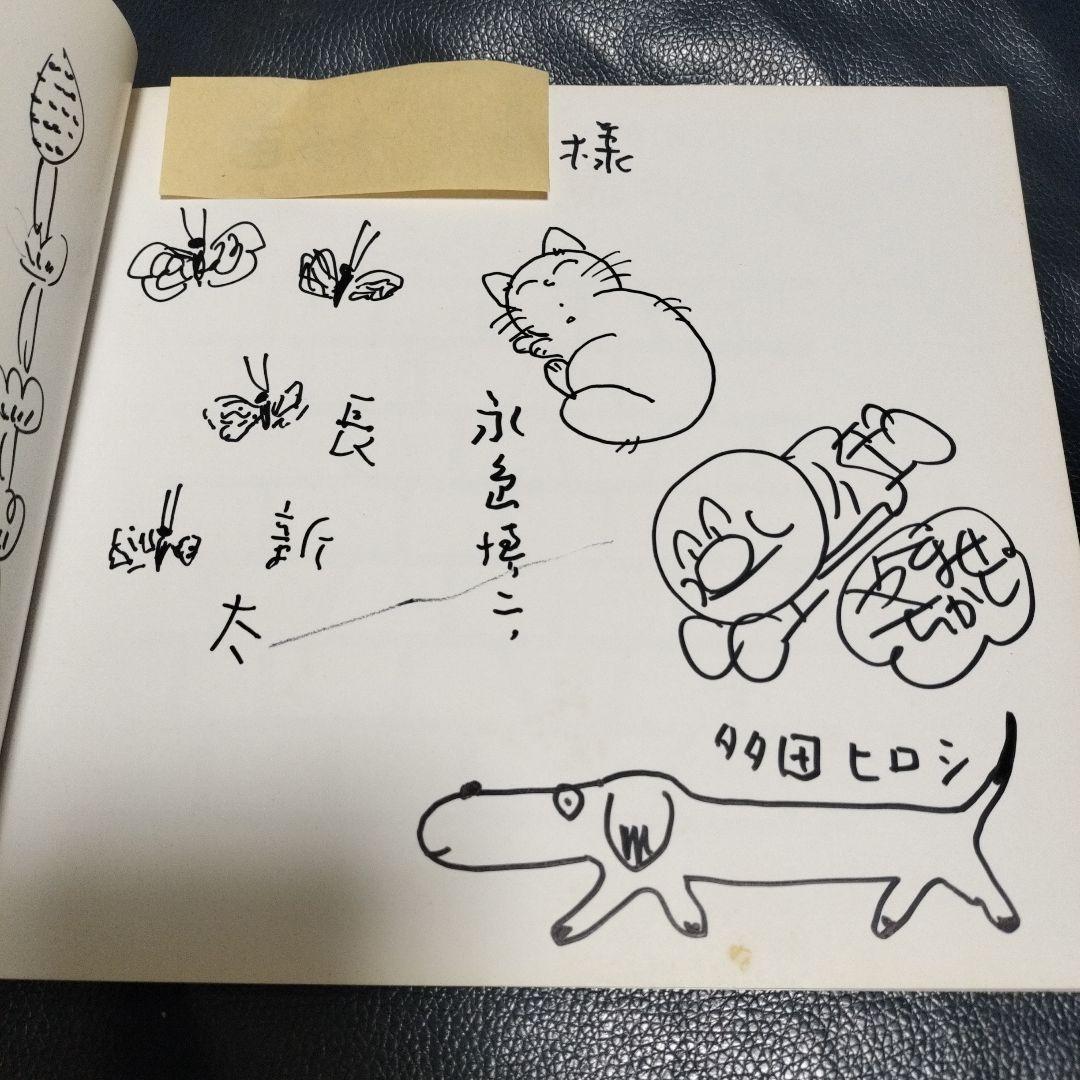 様
長新太
永島慎二
やなせ
たかし
多田ヒロシ